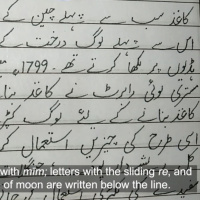 کاغذ سب سے پہلے چین کے
اس سے پہلے لوگ درخت کے
ہڈیوں پر لکھا کرتے تھے۔ 1799ء
مستری لوئی رابرٹ نے کاغذ بنا
کاغذ بنانے کے لئے لوگ کپڑ
اسی طرح کی چیزیں استعمال کر
with mim; letters with the sliding re, and
of moon are written below the line.